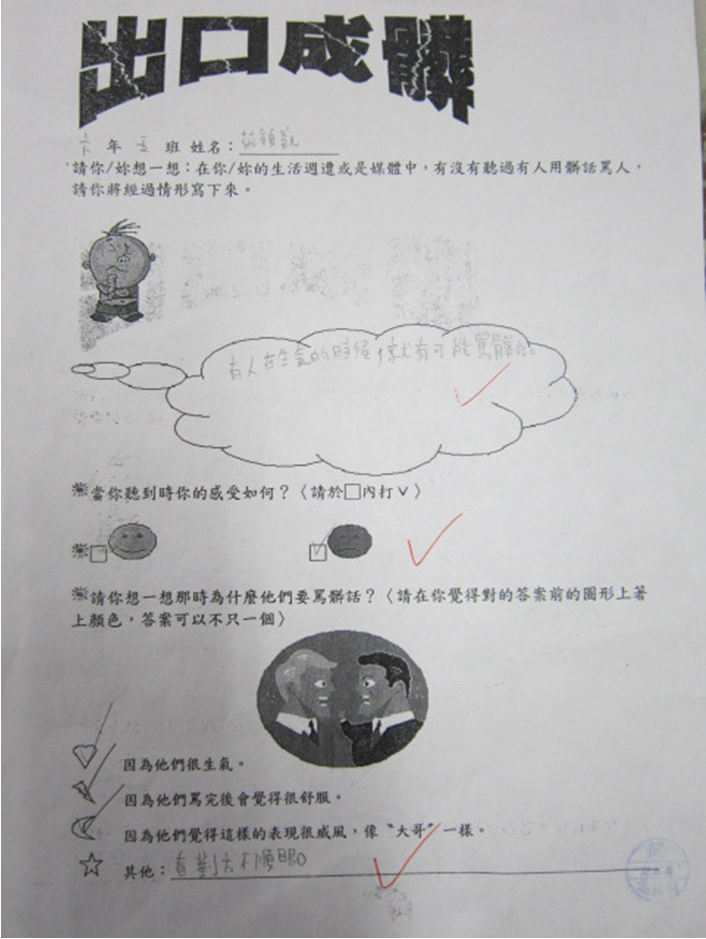 出口成髒
六年五班 姓名：
請你/妳想一想：在你/妳的生活週遭或是媒體中，有沒有聽過有人用髒話罵人，
請你將經過情形寫下來。
有人在生氣的時候，就有可能罵髒話。
當你聽到時你的感受如何？〈請於□內打ˇ〉
請你想一想那時為什麼他們要罵髒話？〈請在你覺得對的答案前的圖形上著
上顏色，答案可以不只一個〉
因為他們很生氣。
因為他們罵完後會覺得很舒服。
因為他們覺得這樣的表現很威風，像〝大哥〞一樣。
其他：看對方不順眼。